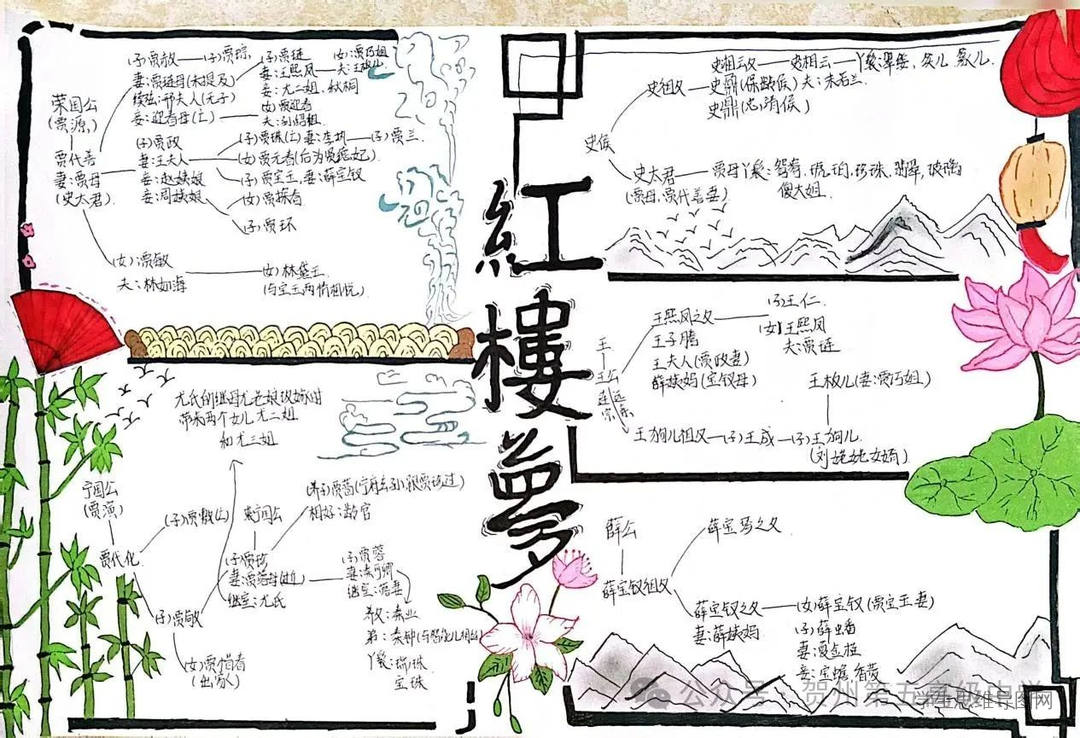 紅樓夢
荣国公
(贾源)
贾代善
妻:贾母
(史太君)
(子)贾赦
(子)贾琮
妻:贾琏母(未提及)
续弦:邢夫人(无子)
妾:迎春母(亡)
(子)贾琏
妻:王熙凤
妾:尤二姐、秋桐
(女)贾巧姐
夫:王板儿
(女)贾迎春
夫:孙绍祖
(子)贾政
妻:王夫人
妾:赵姨娘
妾:周姨娘
(子)贾珠(亡)妻:李纨
(子)贾兰
(女)贾元春(后为贤德妃)
(子)贾宝玉 妻:薛宝钗
(女)贾探春
(子)贾环
(女)贾敏
夫:林如海
(女)林黛玉
(与宝玉两情相悦)
史侯
史祖父
史湘云父
史湘云
丫鬟:翠缕、
史鼐(保龄侯)
夫:
史鼎(忠靖侯)
史太君
(贾母,贾代善妻)
贾母丫鬟:鸳鸯、琥珀、珍珠、翡翠、玻璃
傻大姐.
王
王公
连
宗
远
东
王熙凤之父
王子腾
王夫人(贾政妻)
薛姨妈(宝钗母)
(子)王仁
(女)王熙凤
夫:贾琏
王板儿(妻:贾巧姐)
王狗儿祖父
(子)王成
(子)王狗儿
(刘姥姥女婿)
尤氏的继母尤老娘改嫁时
带来两个女儿尤二姐
和尤三姐
宁国公
(贾演)
贾代化
(子)贾敷(亡)
(子)贾敬
(子)贾珍
继室:尤氏
相好:龄官
(子)贾蓉
妻:秦可卿
继室:
养父:秦业
弟:秦钟
丫鬟:瑞珠
宝珠
(女)贾惜春
(出家)
薛公
薛宝钗祖父
薛宝琴之父
薛宝钗之父
妻:薛姨妈
(女)薛宝钗(贾宝玉妻)
(子)薛蟠
妻:夏金桂
妾:宝蟾、香菱
公众号·贺州第五高级中学
学生思维导图网